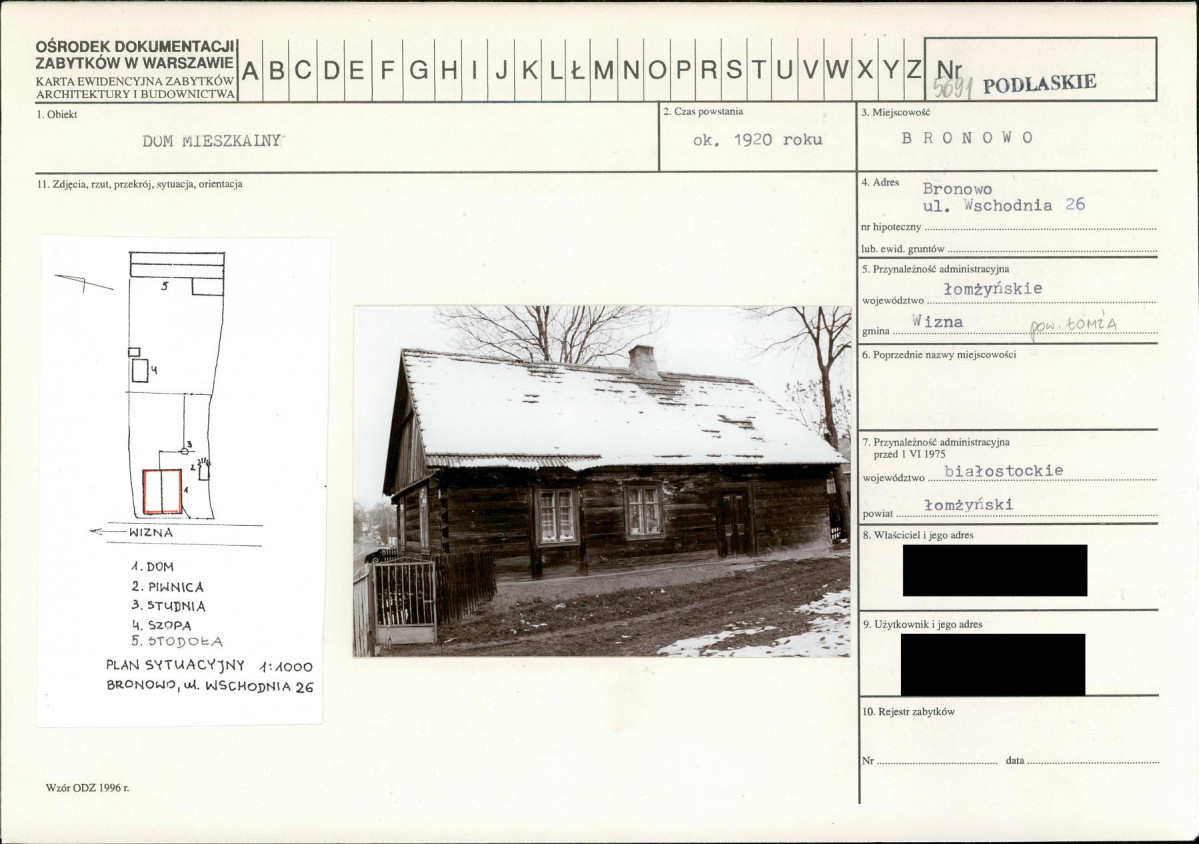 OŚRODEK DOKUMENTACJI
ZABYTKÓW W WARSZAWIE
KARTA EWIDENCYJNA ZABYTKÓW
ARCHITEKTURY I BUDOWNICTWA
A B C D E F G H I J K L Ł M N O P R S T U V W X Y Z
Nr
5691 PODLASKIE
1. Obiekt
DOM MIESZKALNY
2. Czas powstania
ok. 1920 roku
3. Miejscowość
B R O N O W O
11. Zdjęcia, rzut, przekrój, sytuacja, orientacja
4. Adres
Bronowo
ul. Wschodnia 26
nr hipoteczny
lub. ewid. gruntów
5. Przynależność administracyjna
województwo łomżyńskie
gmina Wizna pow. ŁOMŻA
6. Poprzednie nazwy miejscowości
7. Przynależność administracyjna
przed 1 VI 1975
województwo białostockie
powiat łomżyński
8. Właściciel i jego adres
9. Użytkownik i jego adres
10. Rejestr zabytków
Nr data
5
4
3
2
1
WIZNA
1. DOM
2. PIWNICA
3. STUDNIA
4. SZOPA
5. STODOŁA
PLAN SYTUACYJNY 1:1000
BRONOWO, ul. WSCHODNIA 26
Wzór ODZ 1996 r.